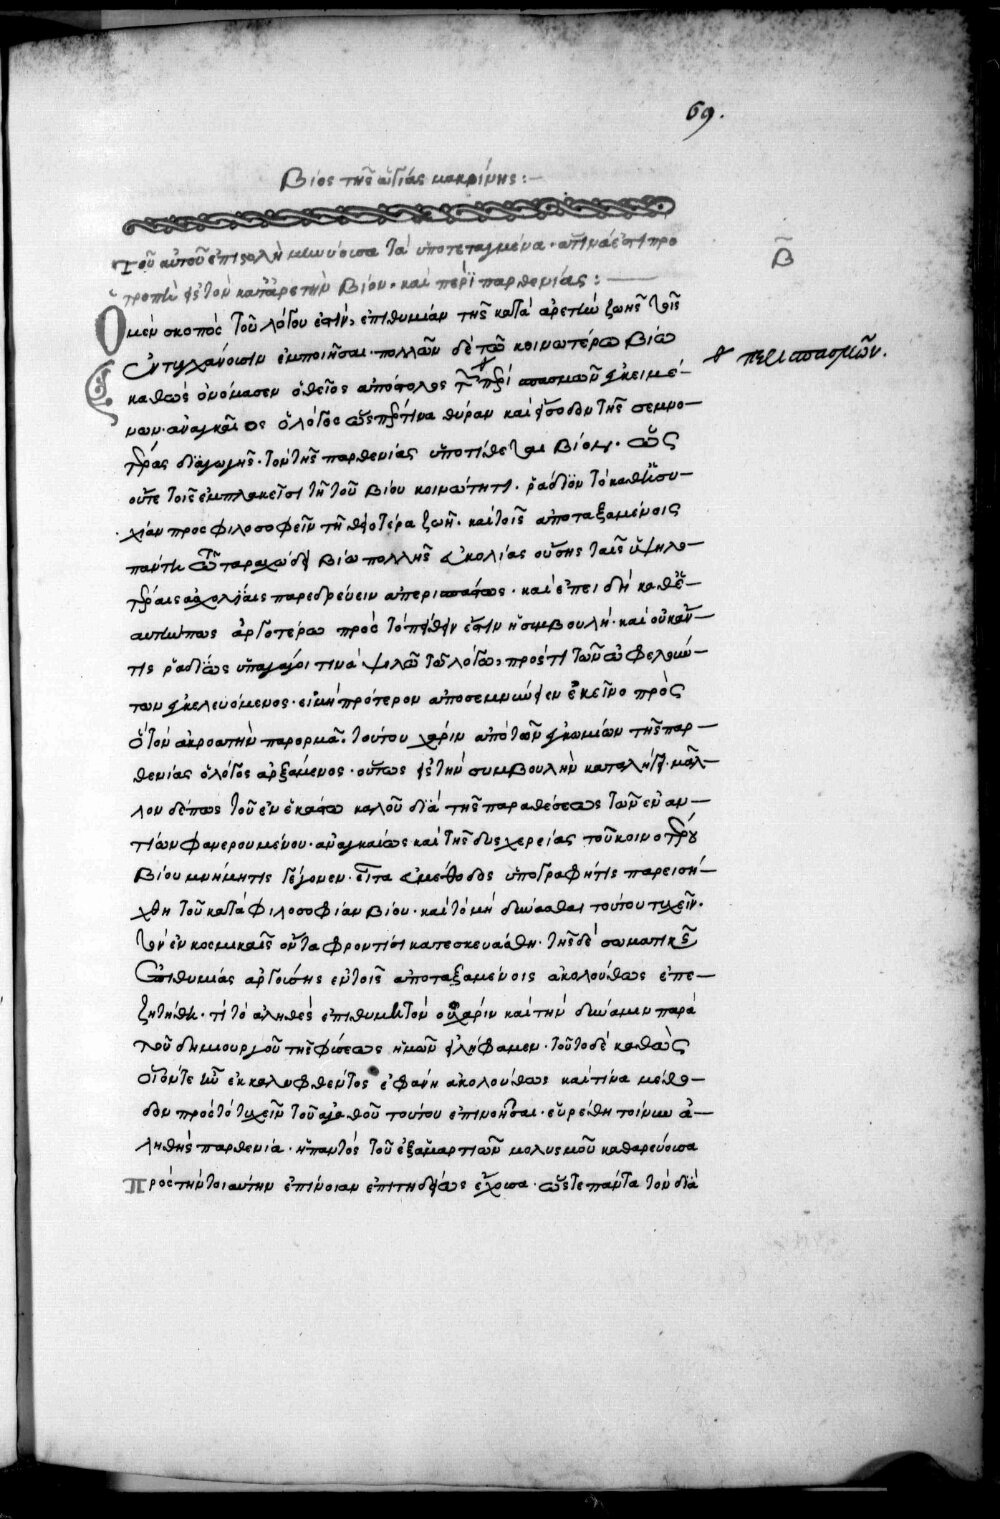 69.
Βίος τῆς ἁγίας μακρίνης :-
Τοῦ αὐτοῦ ἐπιστολὴ μηνύουσα τὰ ὑποτεταγμένα· ἅτινά ἐστι προ
β
τροπὴ εἰς τὸν κατ' ἀρετὴν βίον· καὶ περὶ παρθενίας :
Ὁ μὲν σκοπὸς τοῦ λόγου ἐστὶν, ἐπιθυμίαν τῆς κατὰ ἀρετὴν ζωῆς τοῖς
ἐντυγχάνουσιν ἐμποιῆσαι· πολλῶν δὲ τῷ κοινωτέρῳ βίῳ
περισπασμῶν.
καθὼς ὀνόμασεν ὁ θεῖος ἀπόστολος τῶν περισπασμῶν ἐγκειμέ-
νων· ἀναγκαίως ὁ λόγος ὥσπερ τινα θύραν καὶ εἴσοδον τῆς σεμνο-
τέρας διαγωγῆς· τὸν τῆς παρθενίας ὑποτίθεται βίον· ὡς
οὔτε τοῖς ἐμπλακεῖσι τῇ τοῦ βίου κοινότητι· ῥάδιον τὸ καθ' ἡσυ-
χίαν προσφιλοσοφεῖν τῇ θειοτέρα ζωῇ· καὶ τοῖς ἀποταξαμένοις
πάντη τῷ ταραχώδει βίῳ πολλῆς εὐκολίας οὔσης ταῖς ὑψηλο-
τέραις ἀσχολίαις παρεδρεύειν ἀπερισπάστως· καὶ ἐπειδὴ καθ' ἑ-
αυτήν πως ἀργοτέρα πρὸς τὸ πείθειν ἐστὶν ἡ συμβουλή· καὶ οὐκ ἄν
τις ῥαδίως ὑπαγάγοι τινὰ ψιλῷ τῷ λόγῳ, πρός τι τῶν ὠφελούν-
των ἐγκελευόμενος· εἰ μὴ πρότερον ἀποσεμνύνειεν ἐκεῖνο πρὸς
ὃ τὸν ἀκροατὴν παρορμᾷ· τούτου χάριν ἀπὸ τῶν ἐγκωμίων τῆς παρ-
θενίας ὁ λόγος ἀρξάμενος· οὕτως εἰς τὴν συμβουλὴν καταλήγει· μᾶλ-
λον δέ πως τοῦ ἐν ἑκάστω καλοῦ διὰ τῆς παραθέσεως τῶν ἐναν-
τίων φανερουμένου· ἀναγκαίως καὶ τῆς δυσχερείας τοῦ κοινοτέρου
βίου μνήμη τις γέγονεν· εἶτα εὐμεθόδως ὑπογραφή τις παρεισή-
χθη τοῦ κατὰ φιλοσοφίαν βίου· καὶ τὸ μὴ δύνασθαι τούτου τυχεῖν·
τὸν ἐν κοσμικαῖς ὄντα φροντίσι κατεσκευάσθη· τῆς δὲ σωματικῆς
ἐπιθυμίας ἀργούσης ἐν τοῖς ἀποταξαμένοις ἀκολούθως ἐπε-
ζητήθη· τί τὸ ἀληθὲς ἐπιθυμητὸν οὗ χάριν καὶ τὴν δύναμιν παρὰ
τοῦ δημιουργοῦ τῆς φύσεως ἡμῶν εἰλήφαμεν· τοῦτο δὲ καθὼς
οἷόν τε ἦν ἐκκαλυφθέντος ἐφάνη ἀκολούθως καί τινα μέθο-
δον πρὸς τὸ τυχεῖν τοῦ ἀγαθοῦ τούτου ἐπινοῆσαι· εὑρέθη τοίνυν ἀ-
ληθὴς παρθενία· ἡ παντὸς τοῦ ἐξ ἁμαρτιῶν μολυσμοῦ καθαρεύουσα
Πρὸς τὴν τοιαύτην ἐπίνοιαν ἐπιτηδείως ἔχουσα· ὥστε πάντα τὸν διὰ